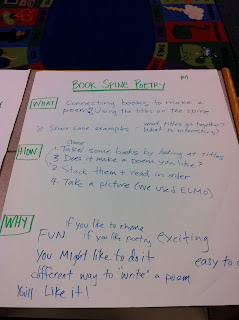 BOOK SPINE POETRY
AM
WHAT Connecting books to make a
poem. Using the titles on the spine
Share some examples - what titles go together?
What is interesting?
Choose
HOW 1 Take some books by looking at titles
3 Does it make a poem you like?
2 Stack them + read in order
4 Take a picture (We used ELMO)
WHY if you like to rhyme
FUN if you like poetry exciting
You might like to do it easy to
different way to "write" a poem
You'll Like it!